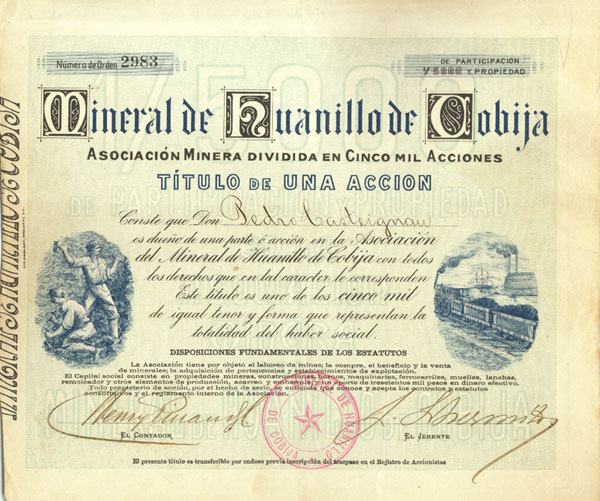 Número de Orden 2983
DE PARTICIPACIÓN
1/5000 Y PROPIEDAD
Mineral de Huanillo de Cobija
ASOCIACIÓN MINERA DIVIDIDA EN CINCO MIL ACCIONES
TÍTULO DE UNA ACCION
Conste que Don Pedro Casteignau
es dueño de una parte ó acción en la Asociación
del Mineral de Huanillo de Cobija con todos
los derechos que en tal caracter le corresponden
Este titulo es uno de los cinco mil
de igual tenor y forma que representan la
totalidad del haber social.
DISPOSICIONES FUNDAMENTALES DE LOS ESTATUTOS
La Asociación tiene por objeto el laboreo de minas; la compra, el beneficio y la venta
de minerales; la adquisición de pertenencias y establecimientos de explotación.
El Capital social consiste en propiedades mineras, construcciones, barcos, maquinarias, ferrocarriles, muelles, lanchas,
remolcador y otros elementos de producción, acarreo y embarque, y un aporte de trescientos mil pesos en dinero efectivo.
Todo propietario de acción, por el hecho de serlo, se entiende que conoce y acepta los contratos y estatutos
constitutivos y el reglamento interno de la Asociación.
EL CONTADOR
EL JERENTE
MINERAL DE HUANILLO
DE COBIJA
El presente titulo es transferible por endoso previa inscripción del traspaso en el Registro de Accionistas
MINERAL DE HUANILLO DE COBIJA